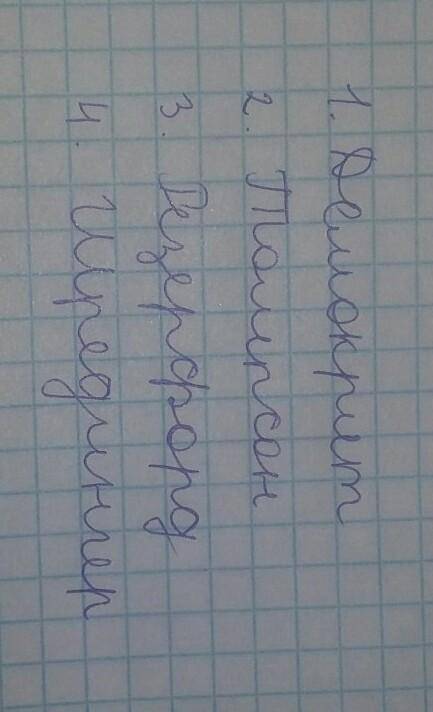 1. Демокрит
2. Томпсон
3. Резерфорд
4. Шредингер